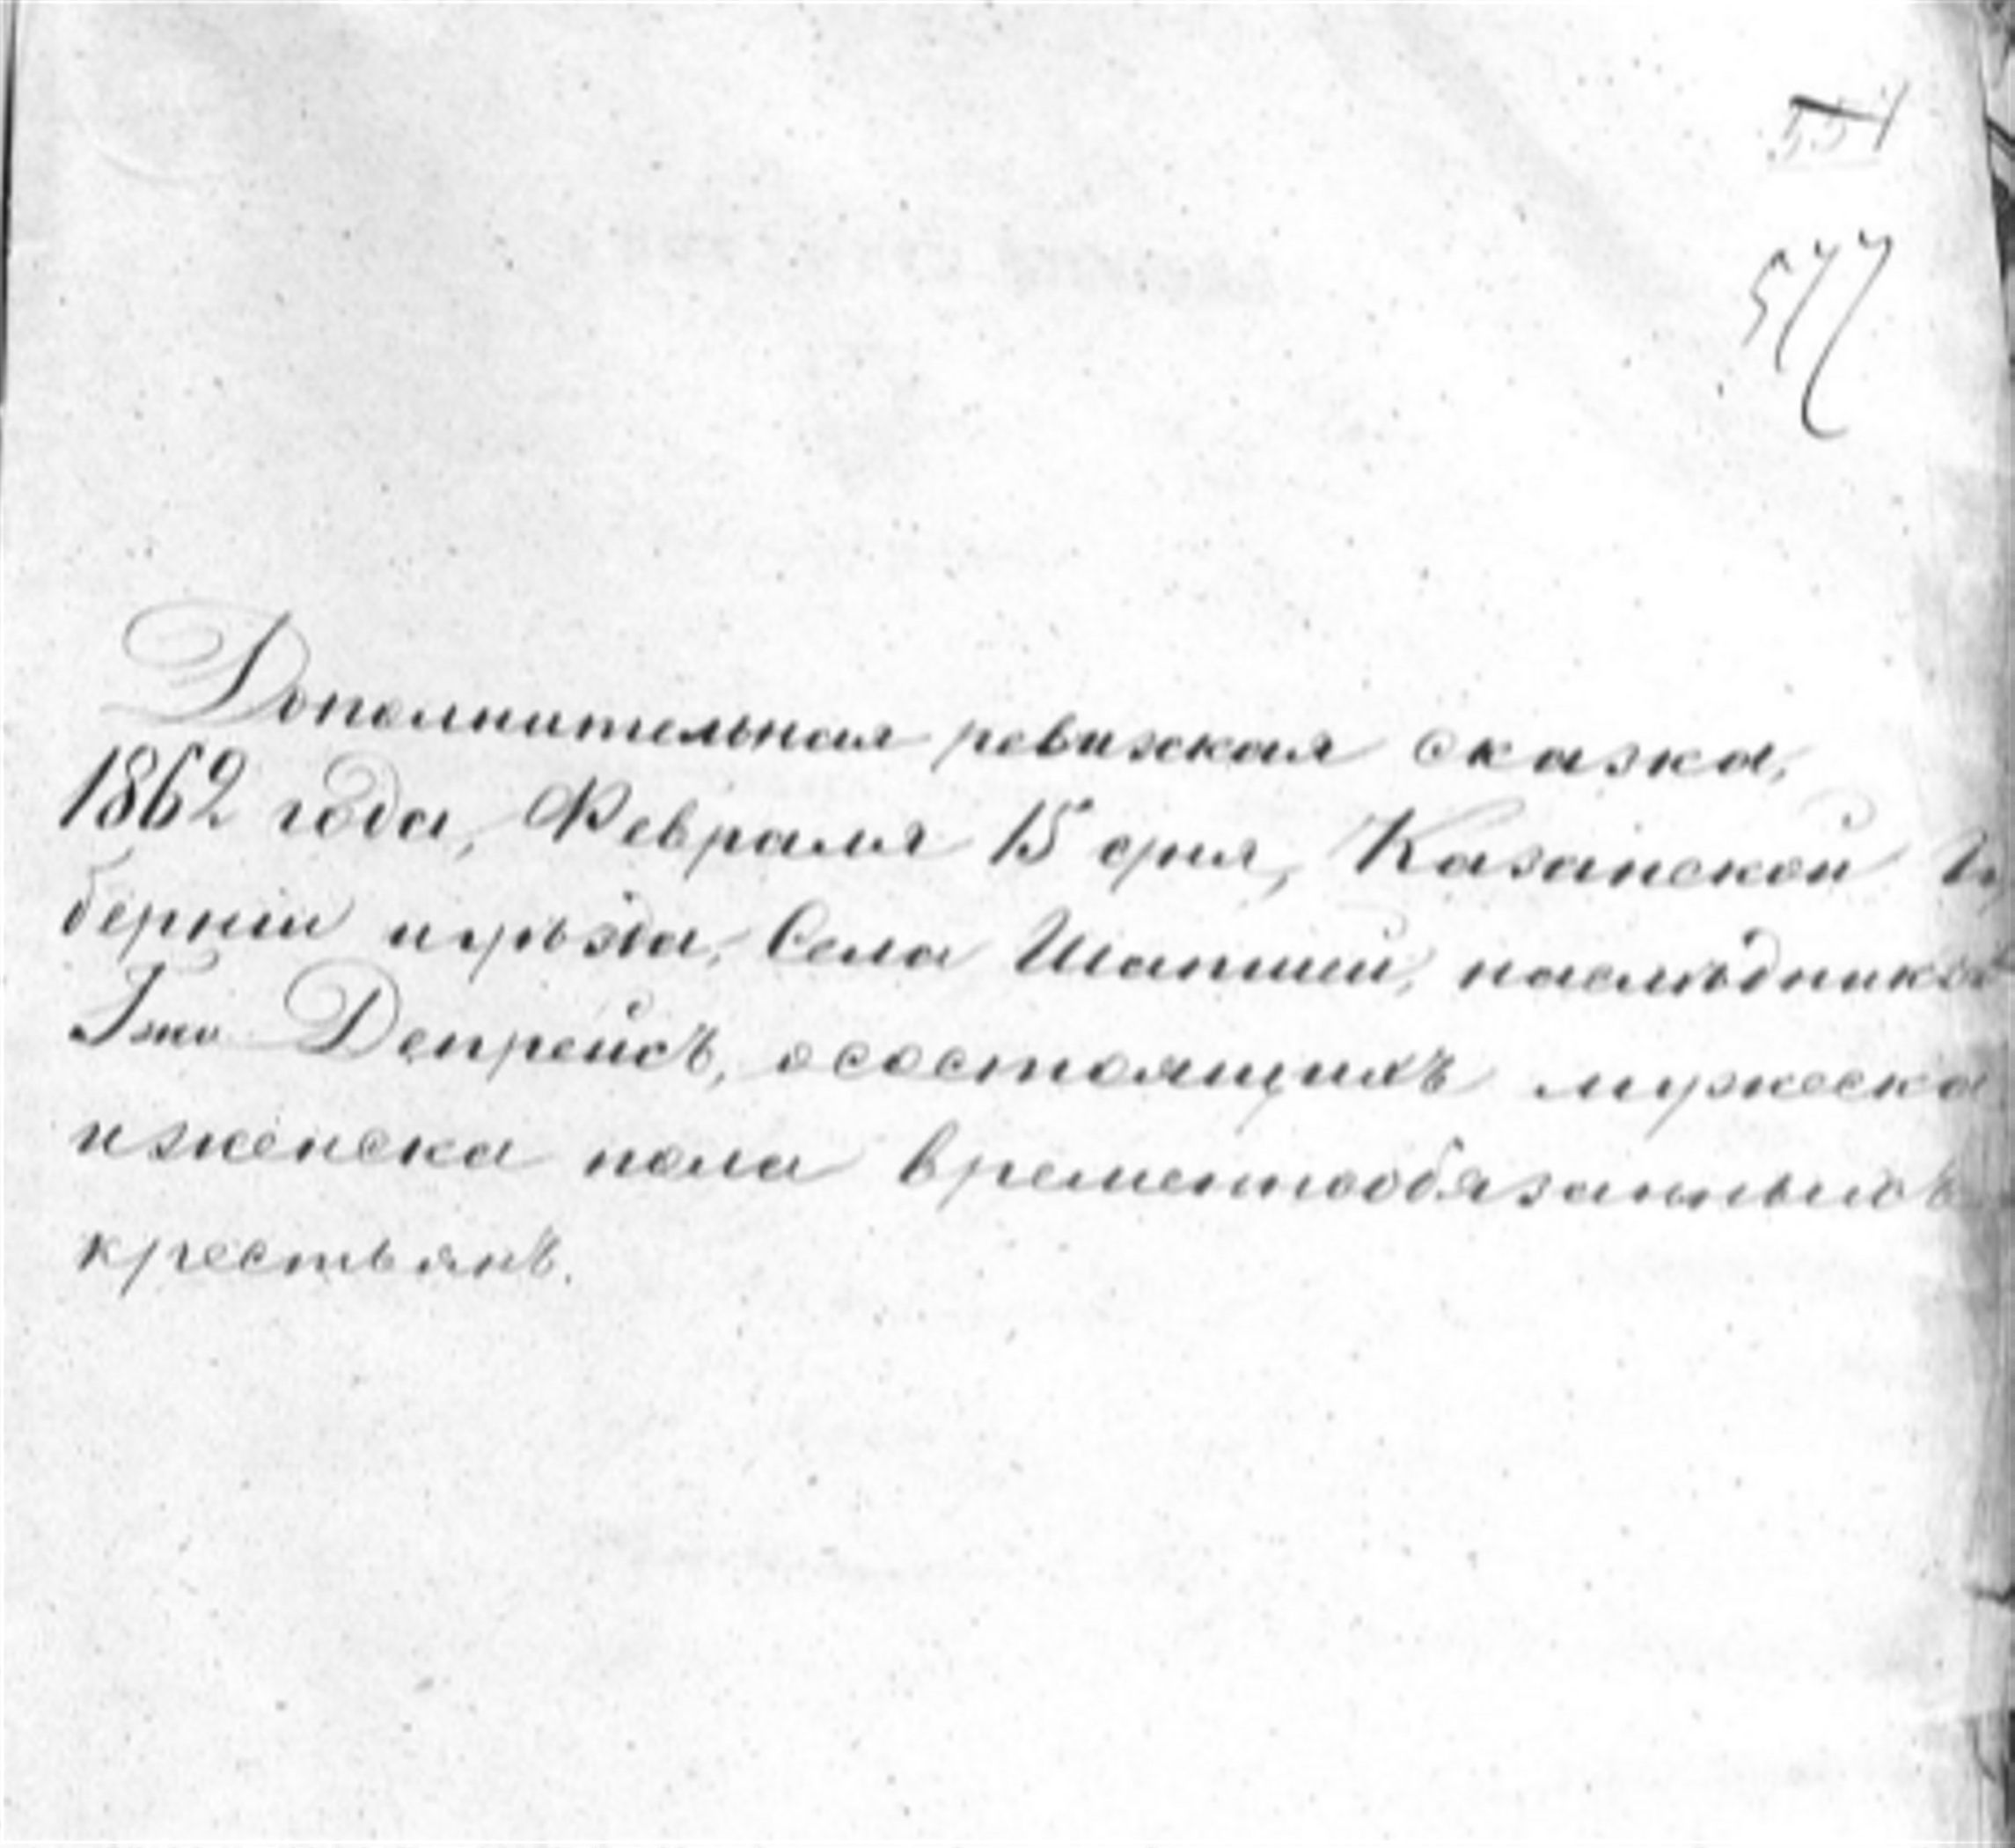 577
Дополнительная ревизкая сказка,
1862 года, Февраля 15 дня, Казанской Гу
берніи иуѣзда, Села Шапши, наслѣдниковъ
Гжи Депрейсъ, осостоящихъ мужеска
иженска пола временнообязанныхъ
крестьянъ.